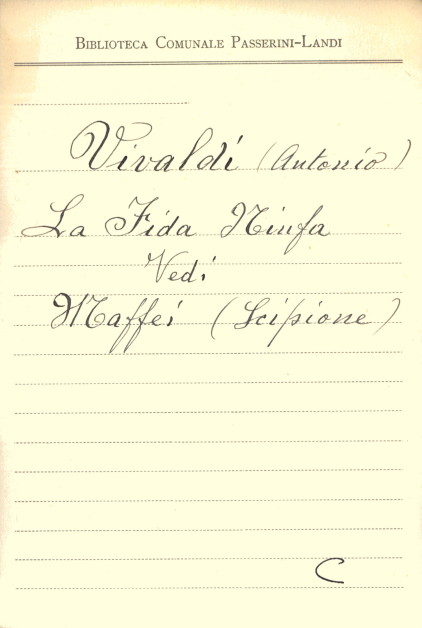 BIBLIOTECA COMUNALE PASSERINI-LANDI
Vivaldi (Antonio)
La Fida Ninfa
Vedi
Maffei (Scipione)
C